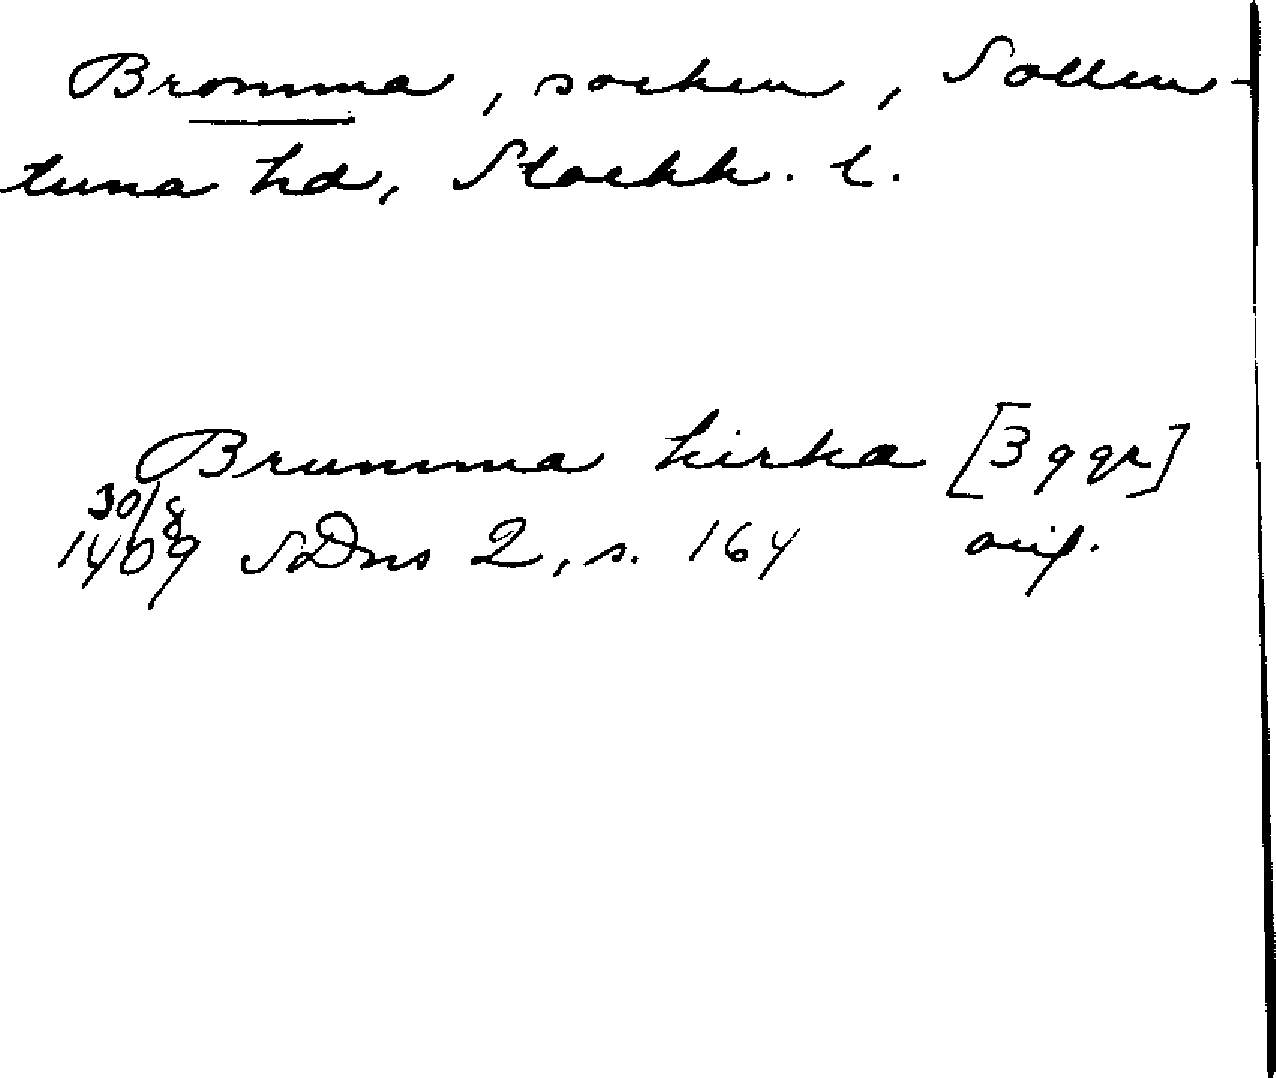 Bromma, socken, Sollen-
tuna hd, Stockh. l.
Brumma kirka [3 ggr]
30/8
1409 SDns 2, s. 164 orig.